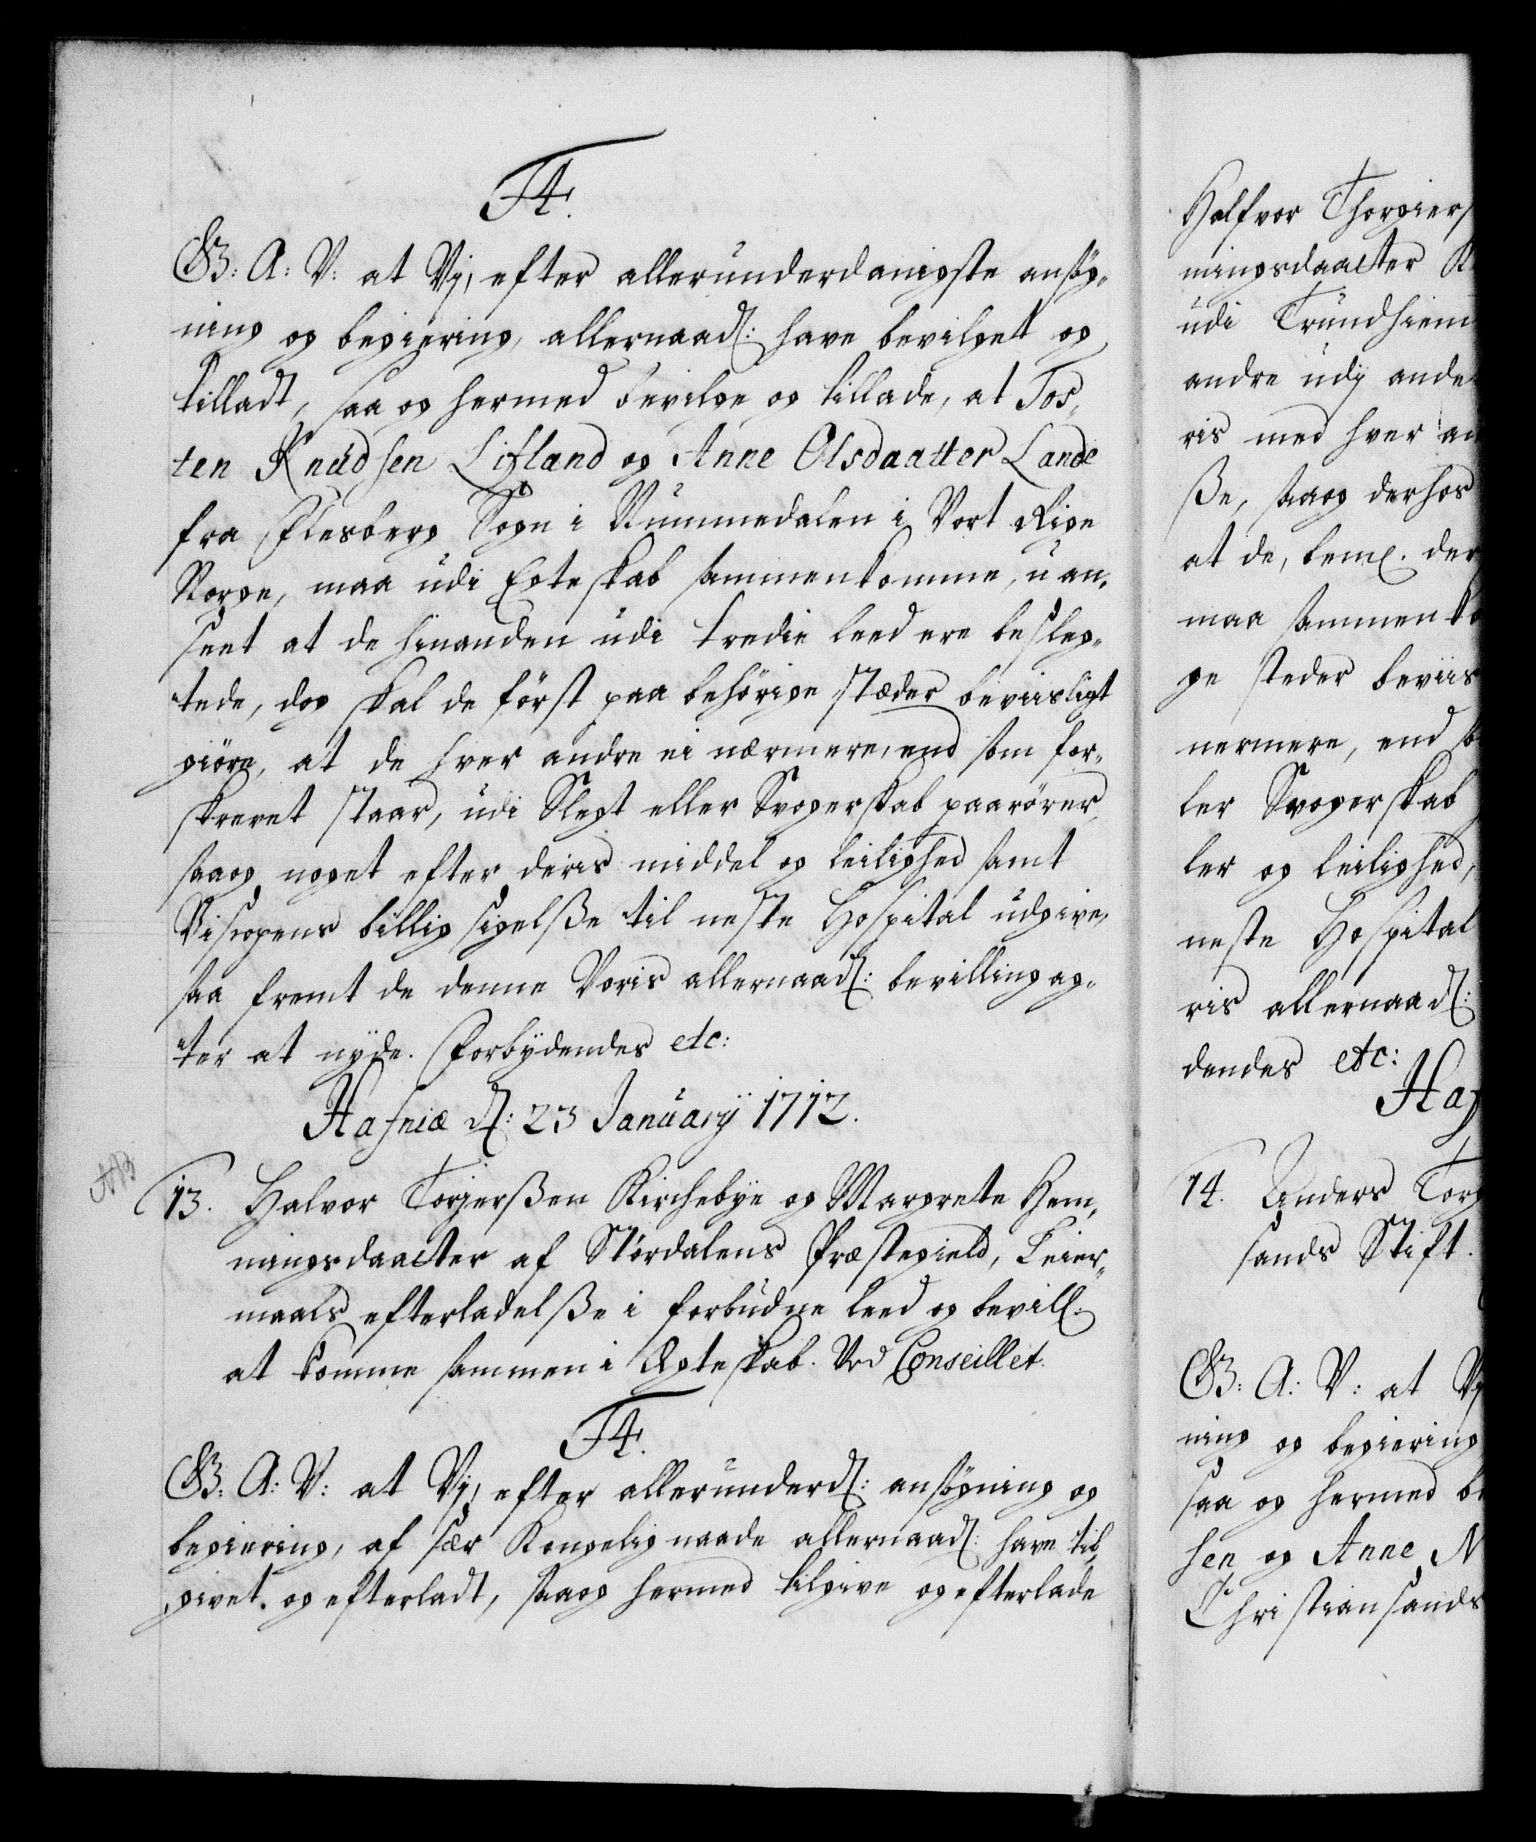 F4.
G: A: V: at Vj, efter allerunderdanigste ansög-
ning og begiering, allernaadˢ: have bevilget og
tilladt, saa og hermed bevilge og tillade, at Tos-
ten Knudsen Lifland og Anne Olsdaatter Lande
fra Flesberg Sogn i Nummedalen i Vort Rige
Norge, maa udi Egteskab sammenkomme, uan-
seet at de hinanden udi tredie leed ere besleg-
tede, dog skal de först paa behörige stæder beviisligt
giöre, at de hver andre ei nærmere, end som for-
skrevet staar, udi Slegt eller Svogerskab paarörer,
saaog noget efter deris middel og leilighed samt
Biscopens billig sigelße til neste Hospital udgive,
saa fremt de denne Voris allernaadˢ: bevilling ag-
ter at nyde. Forbydendes etc:
Hafniæ dˢ: 23 Januarij 1712.
13. Halvor Torgerßen Kirchebye og Margrete Hem-
ningsdaatter af Stördalens Præstegield, Leier-
maals efterladelße i forbudne leed og bevill:
at komme sammen i Egteskab. Ved Conseillet.
F4.
G: A: V: at Vj, efter allerunderdˢ: ansögning og
begiering, af sær Kongelig naade allernaadˢ: have til-
givet og efterladt, saaog hermed tilgive og efterlade
Halfvor Thorgiers
ningsdaatter K
udi Trundhiem
andre udj ande
ris med hver an
ße, saaog derhos
at de, bemˢ. der
maa sammenko
ge steder beviis
nermere, end so
ler Svogerskab
ler og leilighed,
neste Hospital
ris allernaadˢ:
dendes etc:
Haf
14. Anders Torg
sands Stift.
G: A: V: at Vj
ning og begiering
saa og hermed be
sen og Anne N
Christiansands